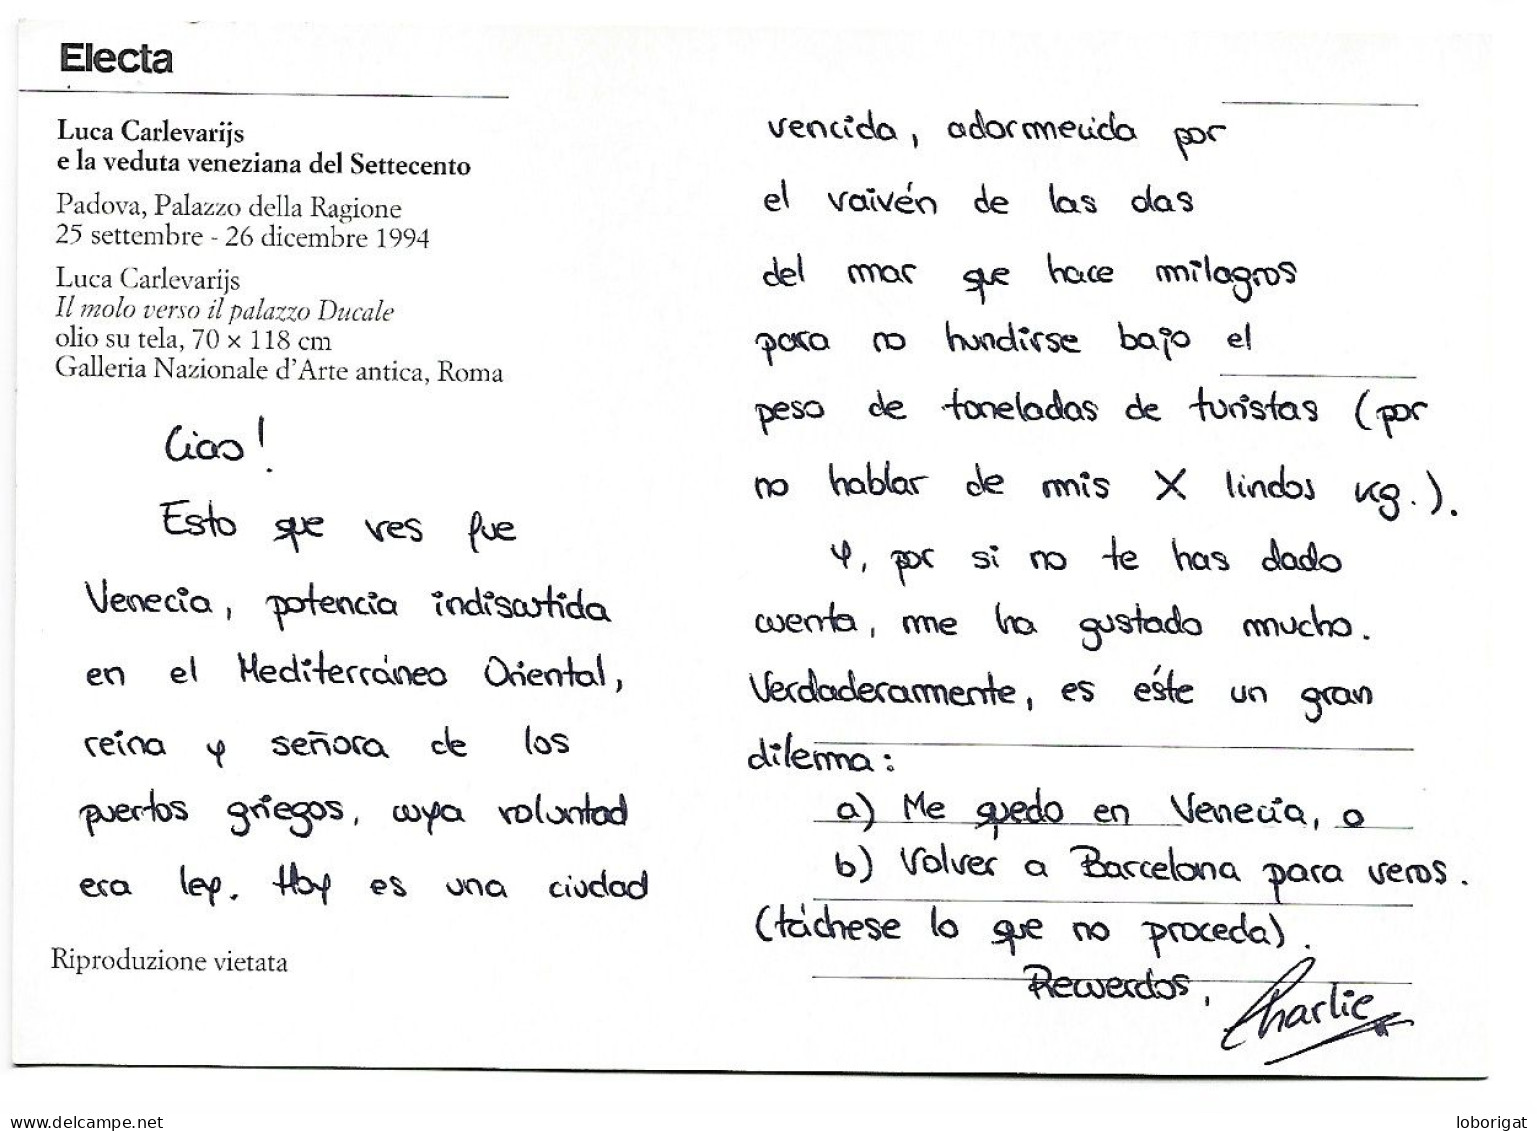 Electa
Luca Carlevarijs
e la veduta veneziana del Settecento
Padova, Palazzo della Ragione
25 settembre - 26 dicembre 1994
Luca Carlevarijs
Il molo verso il palazzo Ducale
olio su tela, 70 × 118 cm
Galleria Nazionale d'Arte antica, Roma
Ciao!
Esto que ves fue
Venecia, potencia indiscutida
en el Mediterráneo Oriental,
reina y señora de los
puertos griegos, cuya voluntad
era ley. Hoy es una ciudad
Riproduzione vietata
vencida, adormecida por
el vaivén de las olas
del mar que hace milagros
para no hundirse bajo el
peso de toneladas de turistas (por
no hablar de mis X lindos kg.).
Y, por si no te has dado
cuenta, me ha gustado mucho.
Verdaderamente, es éste un gran
dilema:
a) Me quedo en Venecia, o
b) Volver a Barcelona para veros.
(táchese lo que no proceda).
Recuerdos,
Charlie
www.delcampe.net
loborigat